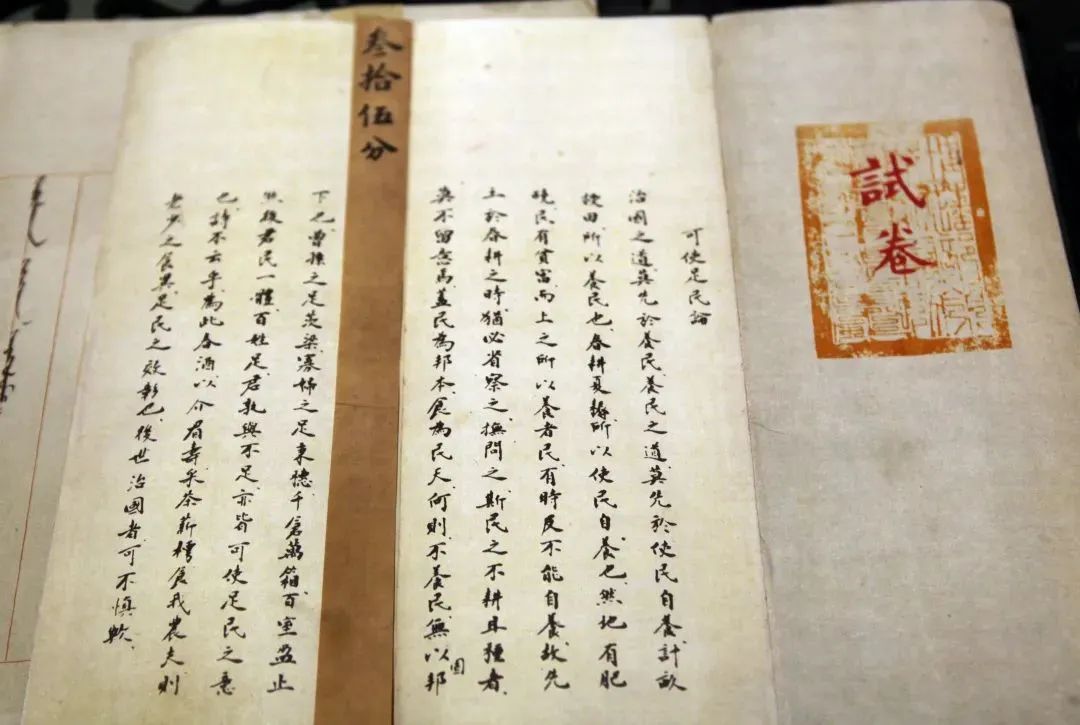 試卷
可使足民論
治國之道莫先於養民養民之道莫先於使民自養計畝
授田所以養民也春耕夏耨所以使民自養也然地有肥
磽民有貧富而上之所以養者民有時反不能自養故先
王於春耕之時猶必省察之撫問之斯民之不耕且種者
莫不留意焉蓋民為邦本食為民天何則不養民無以固邦
叁拾伍分
下也曾孫之足茨梁寡婦之足秉穗千倉萬箱百室盈止
然後君民一體百姓足君孰與不足亦皆可使足民之意
也詩不云乎為此春酒以介眉壽采荼薪樗食我農夫則
老少之食異足民之效彰也後世治國者可不慎歟